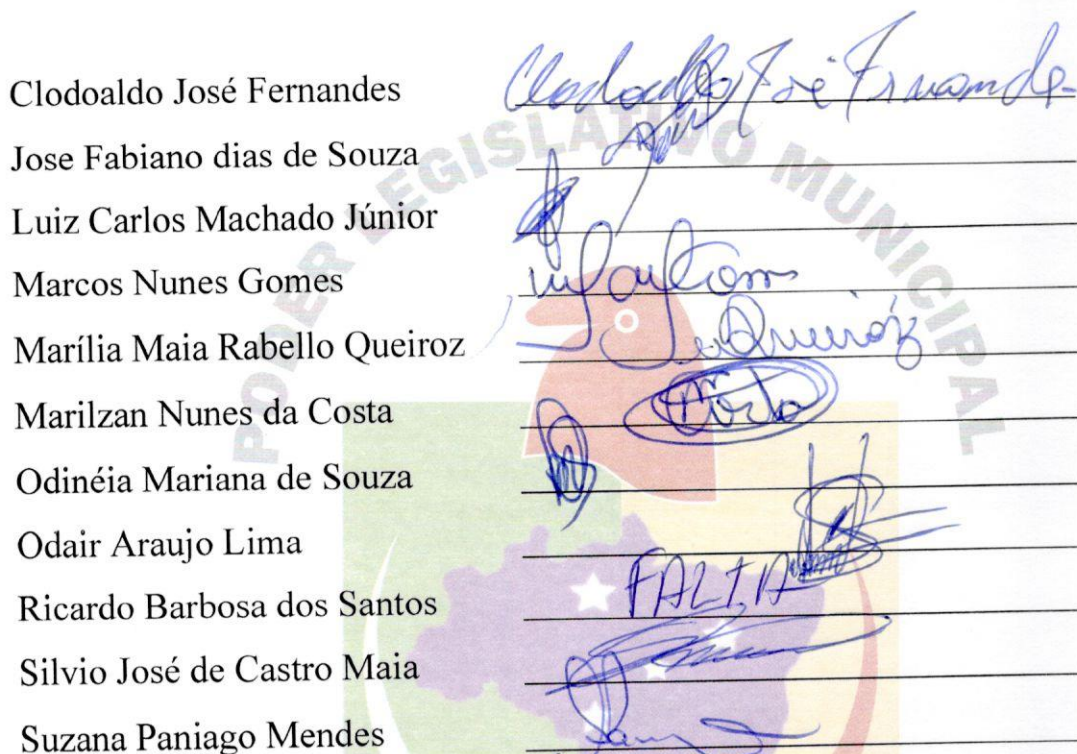 Clodoaldo José Fernandes Clodoaldo José Fernandes
Jose Fabiano dias de Souza
Luiz Carlos Machado Júnior
Marcos Nunes Gomes
Marília Maia Rabello Queiroz Queiróz
Marilzan Nunes da Costa Costa
Odinéia Mariana de Souza
Odair Araujo Lima
Ricardo Barbosa dos Santos FALTA
Silvio José de Castro Maia
Suzana Paniago Mendes
PODER LEGISLATIVO MUNICIPAL